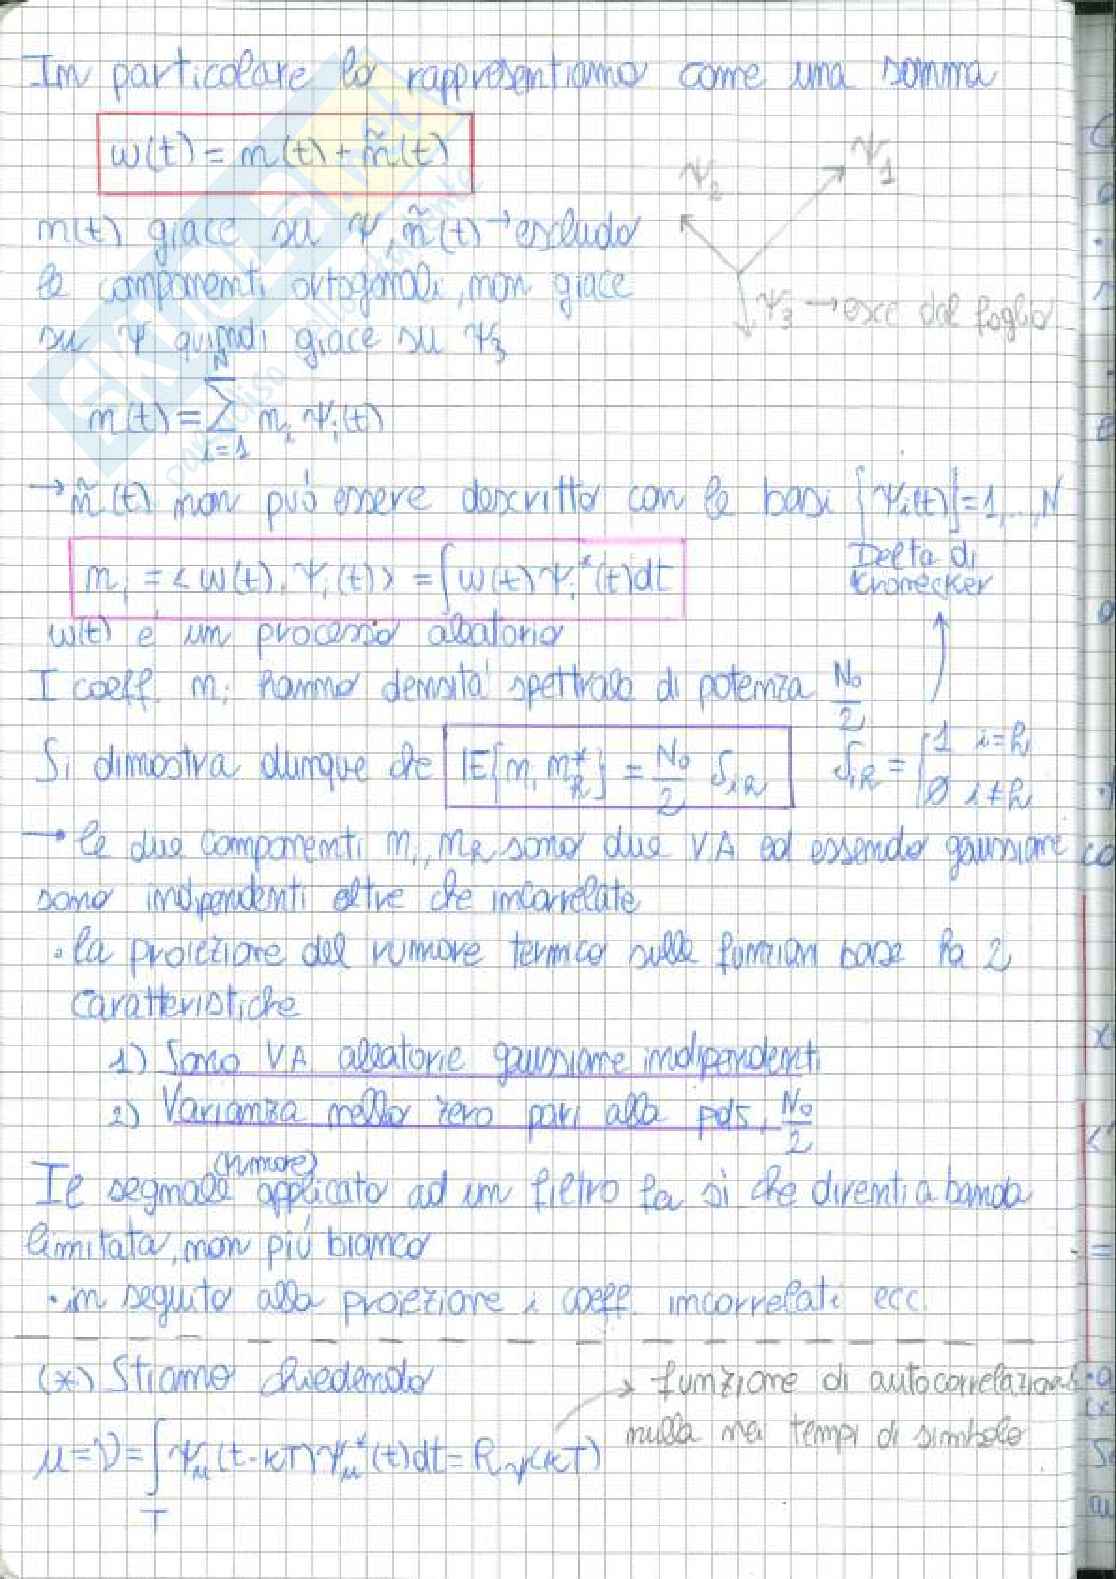 In particolare lo rappresentiamo come una somma
w(t) = n(t) + ñ(t)
ψ2
ψ1
n(t) giace su ψ, ñ(t) → escludo
le componenti ortogonali, non giace
ψ3 → esce dal foglio
su ψ quindi giace su ψ3
n(t) = Σ_{i=1}^{N} n_i ψ_i(t)
→ ñ(t) non può essere descritto con le basi {ψi(t)}=1,...,N
n_i = <w(t), ψ_i(t)> = ∫ w(t) ψ_i*(t) dt
Delta di
Kronecker
w(t) è un processo aleatorio
I coeff. n_i hanno densità spettrale di potenza N0/2
Si dimostra dunque che E{n_i n_k*} = N0/2 δ_ik
δ_ik = { 1 i=k
0 i≠k
→ le due componenti n_i, n_k sono due VA ed essendo gaussiane
sono indipendenti oltre che incorrelate
• la proiezione del rumore termico sulle funzioni base ha 2
caratteristiche
1) Sono VA aleatorie gaussiane indipendenti
2) Varianza nello zero pari alla pds, N0/2
Il segnale (rumore) applicato ad un filtro fa sì che diventi a banda
limitata, non più bianco
• in seguito alla proiezione i coeff. incorrelati ecc.
(*) Stiamo chiedendo
→ funzione di autocorrelazione
nulla nei tempi di simbolo
μ=ν= ∫_T ψ_μ(t-kT) ψ_μ*(t) dt = R_ψ(kT)